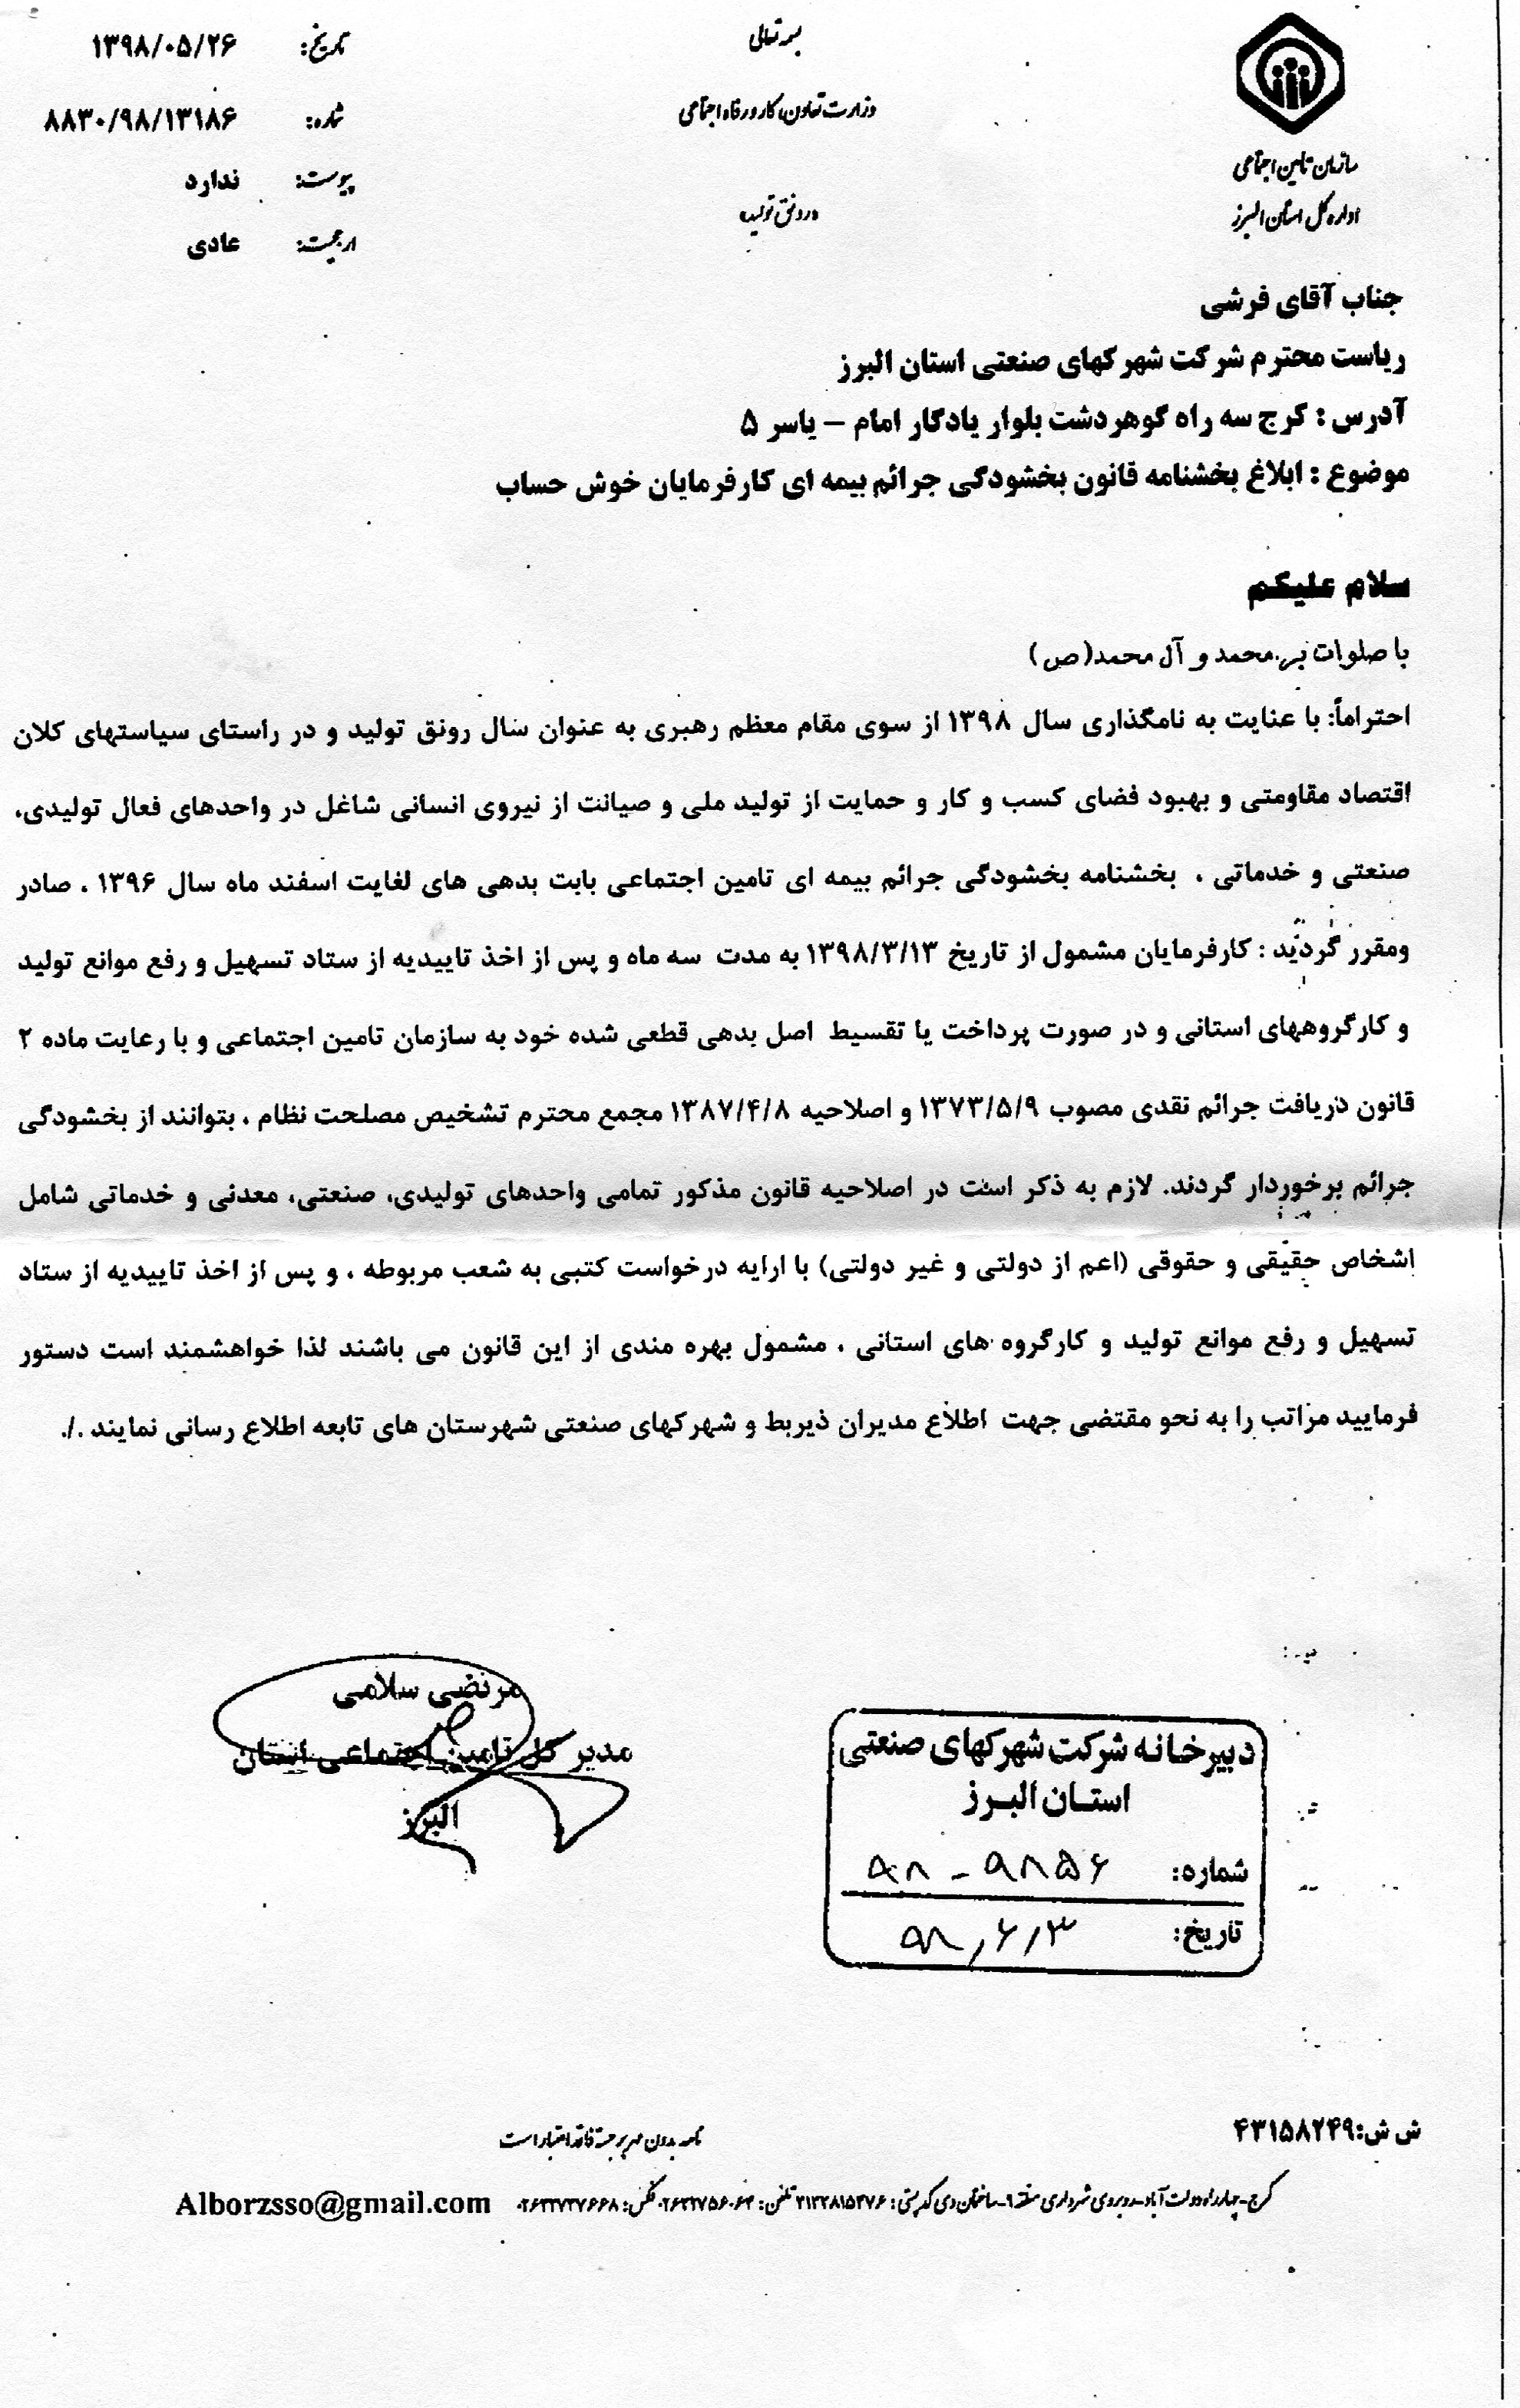 بسمه تعالی
وزارت تعاون، کار و رفاه اجتماعی
«رونق تولید»
سازمان تامین اجتماعی
اداره کل استان البرز
تاریخ: ۱۳۹۸/۰۵/۲۶
شماره: ۸۸۳۰/۹۸/۱۳۱۸۶
پیوست: ندارد
ارجحیت: عادی
جناب آقای فرشی
ریاست محترم شرکت شهرکهای صنعتی استان البرز
آدرس : کرج سه راه گوهردشت بلوار یادگار امام – یاسر ۵
موضوع : ابلاغ بخشنامه قانون بخشودگی جرائم بیمه ای کارفرمایان خوش حساب
سلام علیکم
با صلوات بر محمد و آل محمد(ص)
احتراماً: با عنایت به نامگذاری سال ۱۳۹۸ از سوی مقام معظم رهبری به عنوان سال رونق تولید و در راستای سیاستهای کلان
اقتصاد مقاومتی و بهبود فضای کسب و کار و حمایت از تولید ملی و صیانت از نیروی انسانی شاغل در واحدهای فعال تولیدی،
صنعتی و خدماتی ، بخشنامه بخشودگی جرائم بیمه ای تامین اجتماعی بابت بدهی های لغایت اسفند ماه سال ۱۳۹۶ ، صادر
ومقرر گردید : کارفرمایان مشمول از تاریخ ۱۳۹۸/۳/۱۳ به مدت سه ماه و پس از اخذ تاییدیه از ستاد تسهیل و رفع موانع تولید
و کارگروههای استانی و در صورت پرداخت یا تقسیط اصل بدهی قطعی شده خود به سازمان تامین اجتماعی و با رعایت ماده ۲
قانون دریافت جرائم نقدی مصوب ۱۳۷۳/۵/۹ و اصلاحیه ۱۳۸۷/۴/۸ مجمع محترم تشخیص مصلحت نظام ، بتوانند از بخشودگی
جرائم برخوردار گردند. لازم به ذکر است در اصلاحیه قانون مذکور تمامی واحدهای تولیدی، صنعتی، معدنی و خدماتی شامل
اشخاص حقیقی و حقوقی (اعم از دولتی و غیر دولتی) با ارایه درخواست کتبی به شعب مربوطه ، و پس از اخذ تاییدیه از ستاد
تسهیل و رفع موانع تولید و کارگروه های استانی ، مشمول بهره مندی از این قانون می باشند لذا خواهشمند است دستور
فرمایید مراتب را به نحو مقتضی جهت اطلاع مدیران ذیربط و شهرکهای صنعتی شهرستان های تابعه اطلاع رسانی نمایند ./.
مرتضی سلامی
مدیر کل تامین اجتماعی استان
البرز
دبیرخانه شرکت شهرکهای صنعتی
استان البرز
شماره: ۹۸ - ۹۸۵۶
تاریخ: ۹۸/۶/۳
ش ش:۴۳۱۵۸۲۴۹
نامه بدون مهر برجسته فاقد اعتبار است
کرج-چهارراه دولت آباد-روبروی شهرداری منطقه ۹-ساختمان دی کد پستی: ۳۱۳۳۸۱۵۴۷۶ تلفن: ۰۲۶۳۲۷۵۶۰۶۳ فکس: ۰۲۶۳۲۷۲۷۶۶۸ Alborzsso@gmail.com